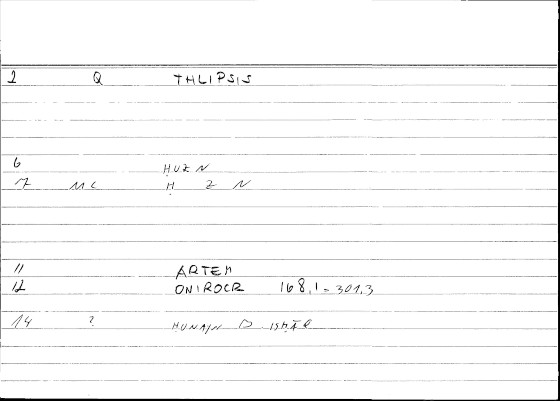 1 Q THLIPSIS
6 ḤUZN
7 ML Ḥ Z N
11 ARTEM
12 ONIROCR 168,1 = 301,3
14 ? ḤUNAIN B. ISḤĀQ